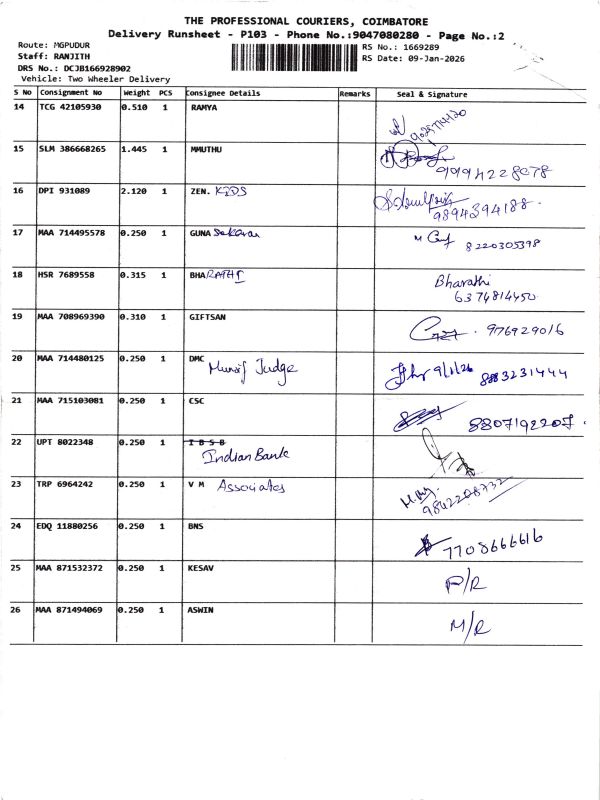 THE PROFESSIONAL COURIERS, COIMBATORE
Delivery Runsheet - P103 - Phone No.:9047080280 - Page No.:2
Route: MGPUDUR
Staff: RANJITH
DRS No.: DCJB166928902
Vehicle: Two Wheeler Delivery
RS No.: 1669289
RS Date: 09-Jan-2026
S No Consignment No Weight PCS Consignee Details Remarks Seal & Signature
14 TCG 42105930 0.510 1 RAMYA
15 SLM 386668265 1.445 1 MMUTHU
9994228078
16 DPI 931089 2.120 1 ZEN. KIDS
9894394188.
17 MAA 714495578 0.250 1 GUNA Sekaran
8220305398
18 HSR 7689558 0.315 1 BHARATHI
Bharathi
6374814450
19 MAA 708969390 0.310 1 GIFTSAN
976929016
20 MAA 714480125 0.250 1 DMC
Munsif Judge
9/1/26 8883231444
21 MAA 715103081 0.250 1 CSC
8807192207.
22 UPT 8022348 0.250 1 I B S B
Indian Bank
23 TRP 6964242 0.250 1 V M Associates
9842208732
24 EDQ 11880256 0.250 1 BNS
7708666616
25 MAA 871532372 0.250 1 KESAV
P/R
26 MAA 871494069 0.250 1 ASWIN
M/R